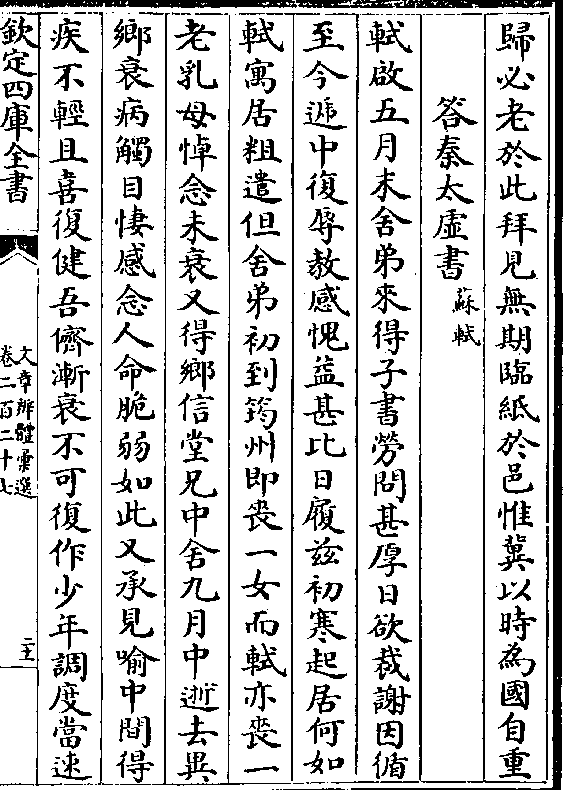 歸必老於此拜見無期臨紙於邑惟冀以時為國自重
答秦太虛書蘇軾
軾啟五月末舍弟來得子書勞問甚厚日欲裁謝因循
至今遞中復辱教感愧益甚比日履兹初寒起居何如
軾寓居粗遣但舍弟初到筠州即喪一女而軾亦喪一
老乳母悼念未衰又得鄉信堂兄中舍九月中逝去異
鄉衰病觸目悽感念人命脆弱如此又承見喻中間得
疾不輕且喜復健吾儕漸衰不可復作少年調度當速
欽定四庫全書
文章辨體彙選
卷二百二十七
二十五